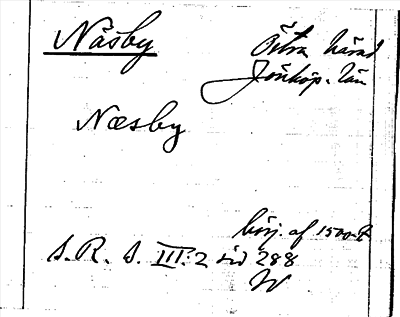 Näsby Östra härad
Jönköp. län
Næsby
börj. af 1500-t
S. R. S. III:2 sid 288
W